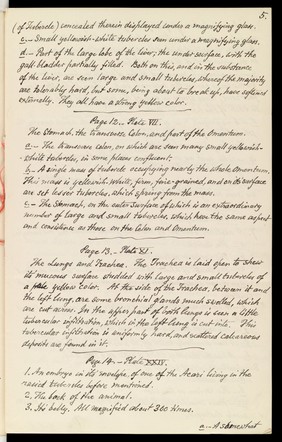 5.
(of Tubercle) concealed therein displayed under a magnifying glass.
c. – Small yellowish-white tubercles seen under a magnifying glass.
d. – Part of the large lobe of the liver; the under surface, with the
gall bladder partially filled. Both on this, and in the substance
of the liver, are seen large and small tubercles, whereof the majority
are tolerably hard, but some, being about to break up, have softened
externally. They all have a strong yellow color.
Page 12. – Plate VII.
The Stomach, the transverse Colon, and part of the Omentum.
a. – The transverse colon, on which are seen many small yellowish-
white tubercles, in some places confluent.
b. – A single mass of tubercle occupying nearly the whole Omentum.
This mass is yellowish-white, firm, fine-grained, and on its surface
are set lesser tubercles, which spring from the mass.
c. – The Stomach, on the outer surface of which is an extraordinary
number of large and small tubercles, which have the same aspect
and consistence as those on the Colon and Omentum.
Page 13. – Plate XI.
The Lungs and Trachea. The Trachea is laid open to shew
its mucous surface studded with large and small tubercles of
a pale yellow color. At the side of the Trachea, between it and
the left lung, are some bronchial glands much swelled, which
are cut across. In the upper part of both lungs is seen a little
tubercular infiltration, which in the left lung is cut into. This
tubercular infiltration is uniformly hard, and scattered calcareous
deposits are found in it.
Page 14. – Plate XXXIV.
1. An embryo in its envelope, of one of the Acari living in the
rabid tubercles before mentioned.
2. The back of the animal.
3. Its belly. All magnified about 300 times.
a. – A